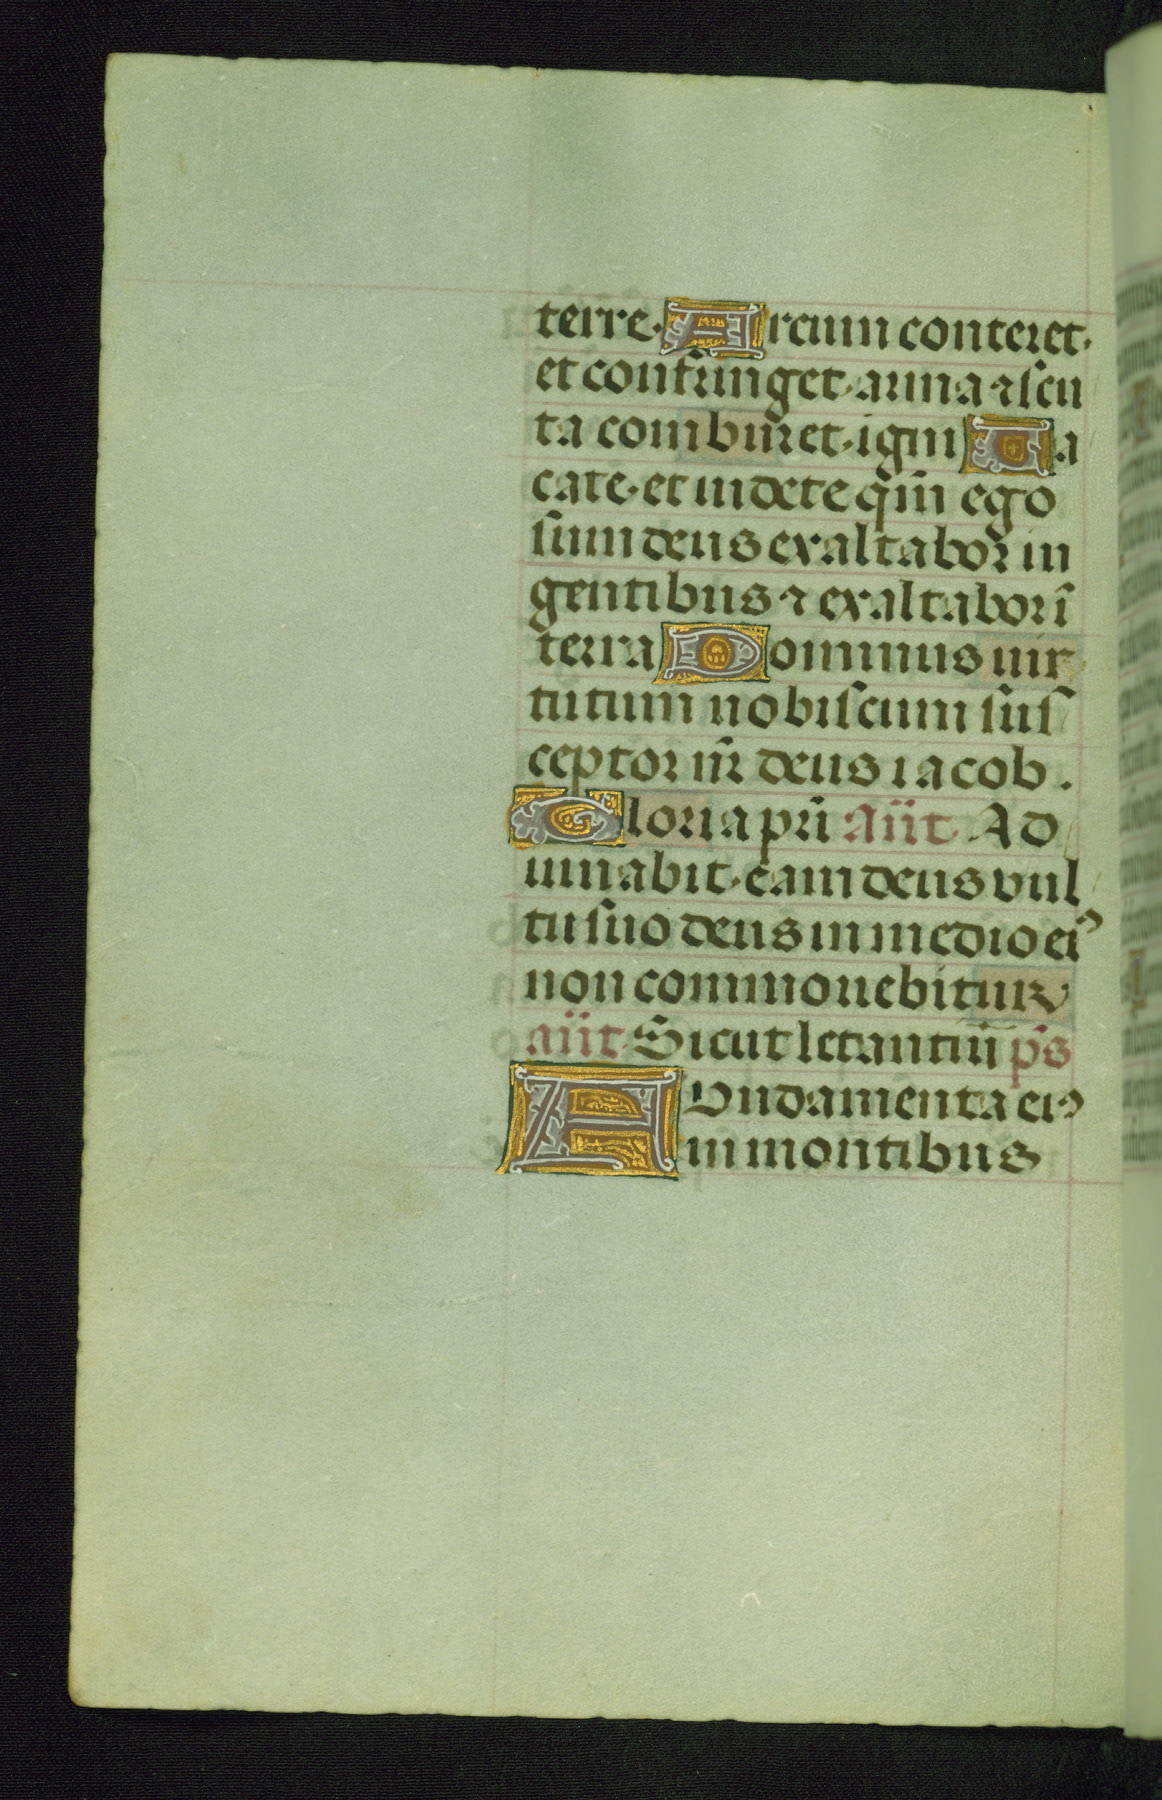 terre. Arcum conteret.
et confringet. arma ⁊ scu
ta comburet. igni Ua
cate. et uidete qm̄ ego
sum deus exaltabor in
gentibus ⁊ exaltabor ī
terra Dominus uir
tutum nobiscum sus
ceptor nr̄ deus iacob.
Gloria pr̄i Añt. Ad
iuuabit. eam deus vul
tu suo deus in medio eiꝰ
non commouebitur
añt. Sicut letantiū ps̄
FVndamenta eiꝰ
in montibus